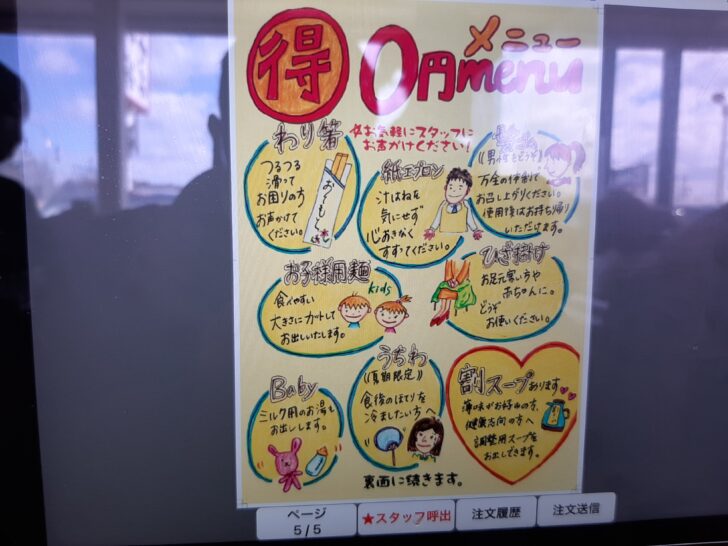 得
0円
メニュー
menu
わり箸
つるつる
滑って
お困りの方
お声がけ
ください。
おてもと
☆お気軽にスタッフに
お声がけください!
紙エプロン
汁はねを
気にせず
心おきなく
すすってください。
(男性もどうぞ)
万全の体制で
お召し上がりください。
使用後はお持ち帰り
いただけます。
お子様用麺
kids
食べやすい
大きさにカットして
お出しいたします。
ひざ掛け
お足元寒い方や
赤ちゃんに。
どうぞ
お使いください。
Baby
ミルク用のお湯も
お出しします。
うちわ
(夏期限定)
食後のほてりを
冷ましたい方へ
割スープあります
薄味がお好みの方、
健康志向の方へ
調整用スープを
お出しできます。
裏面に続きます。
ページ
5/5
★スタッフ呼出
注文履歴
注文送信